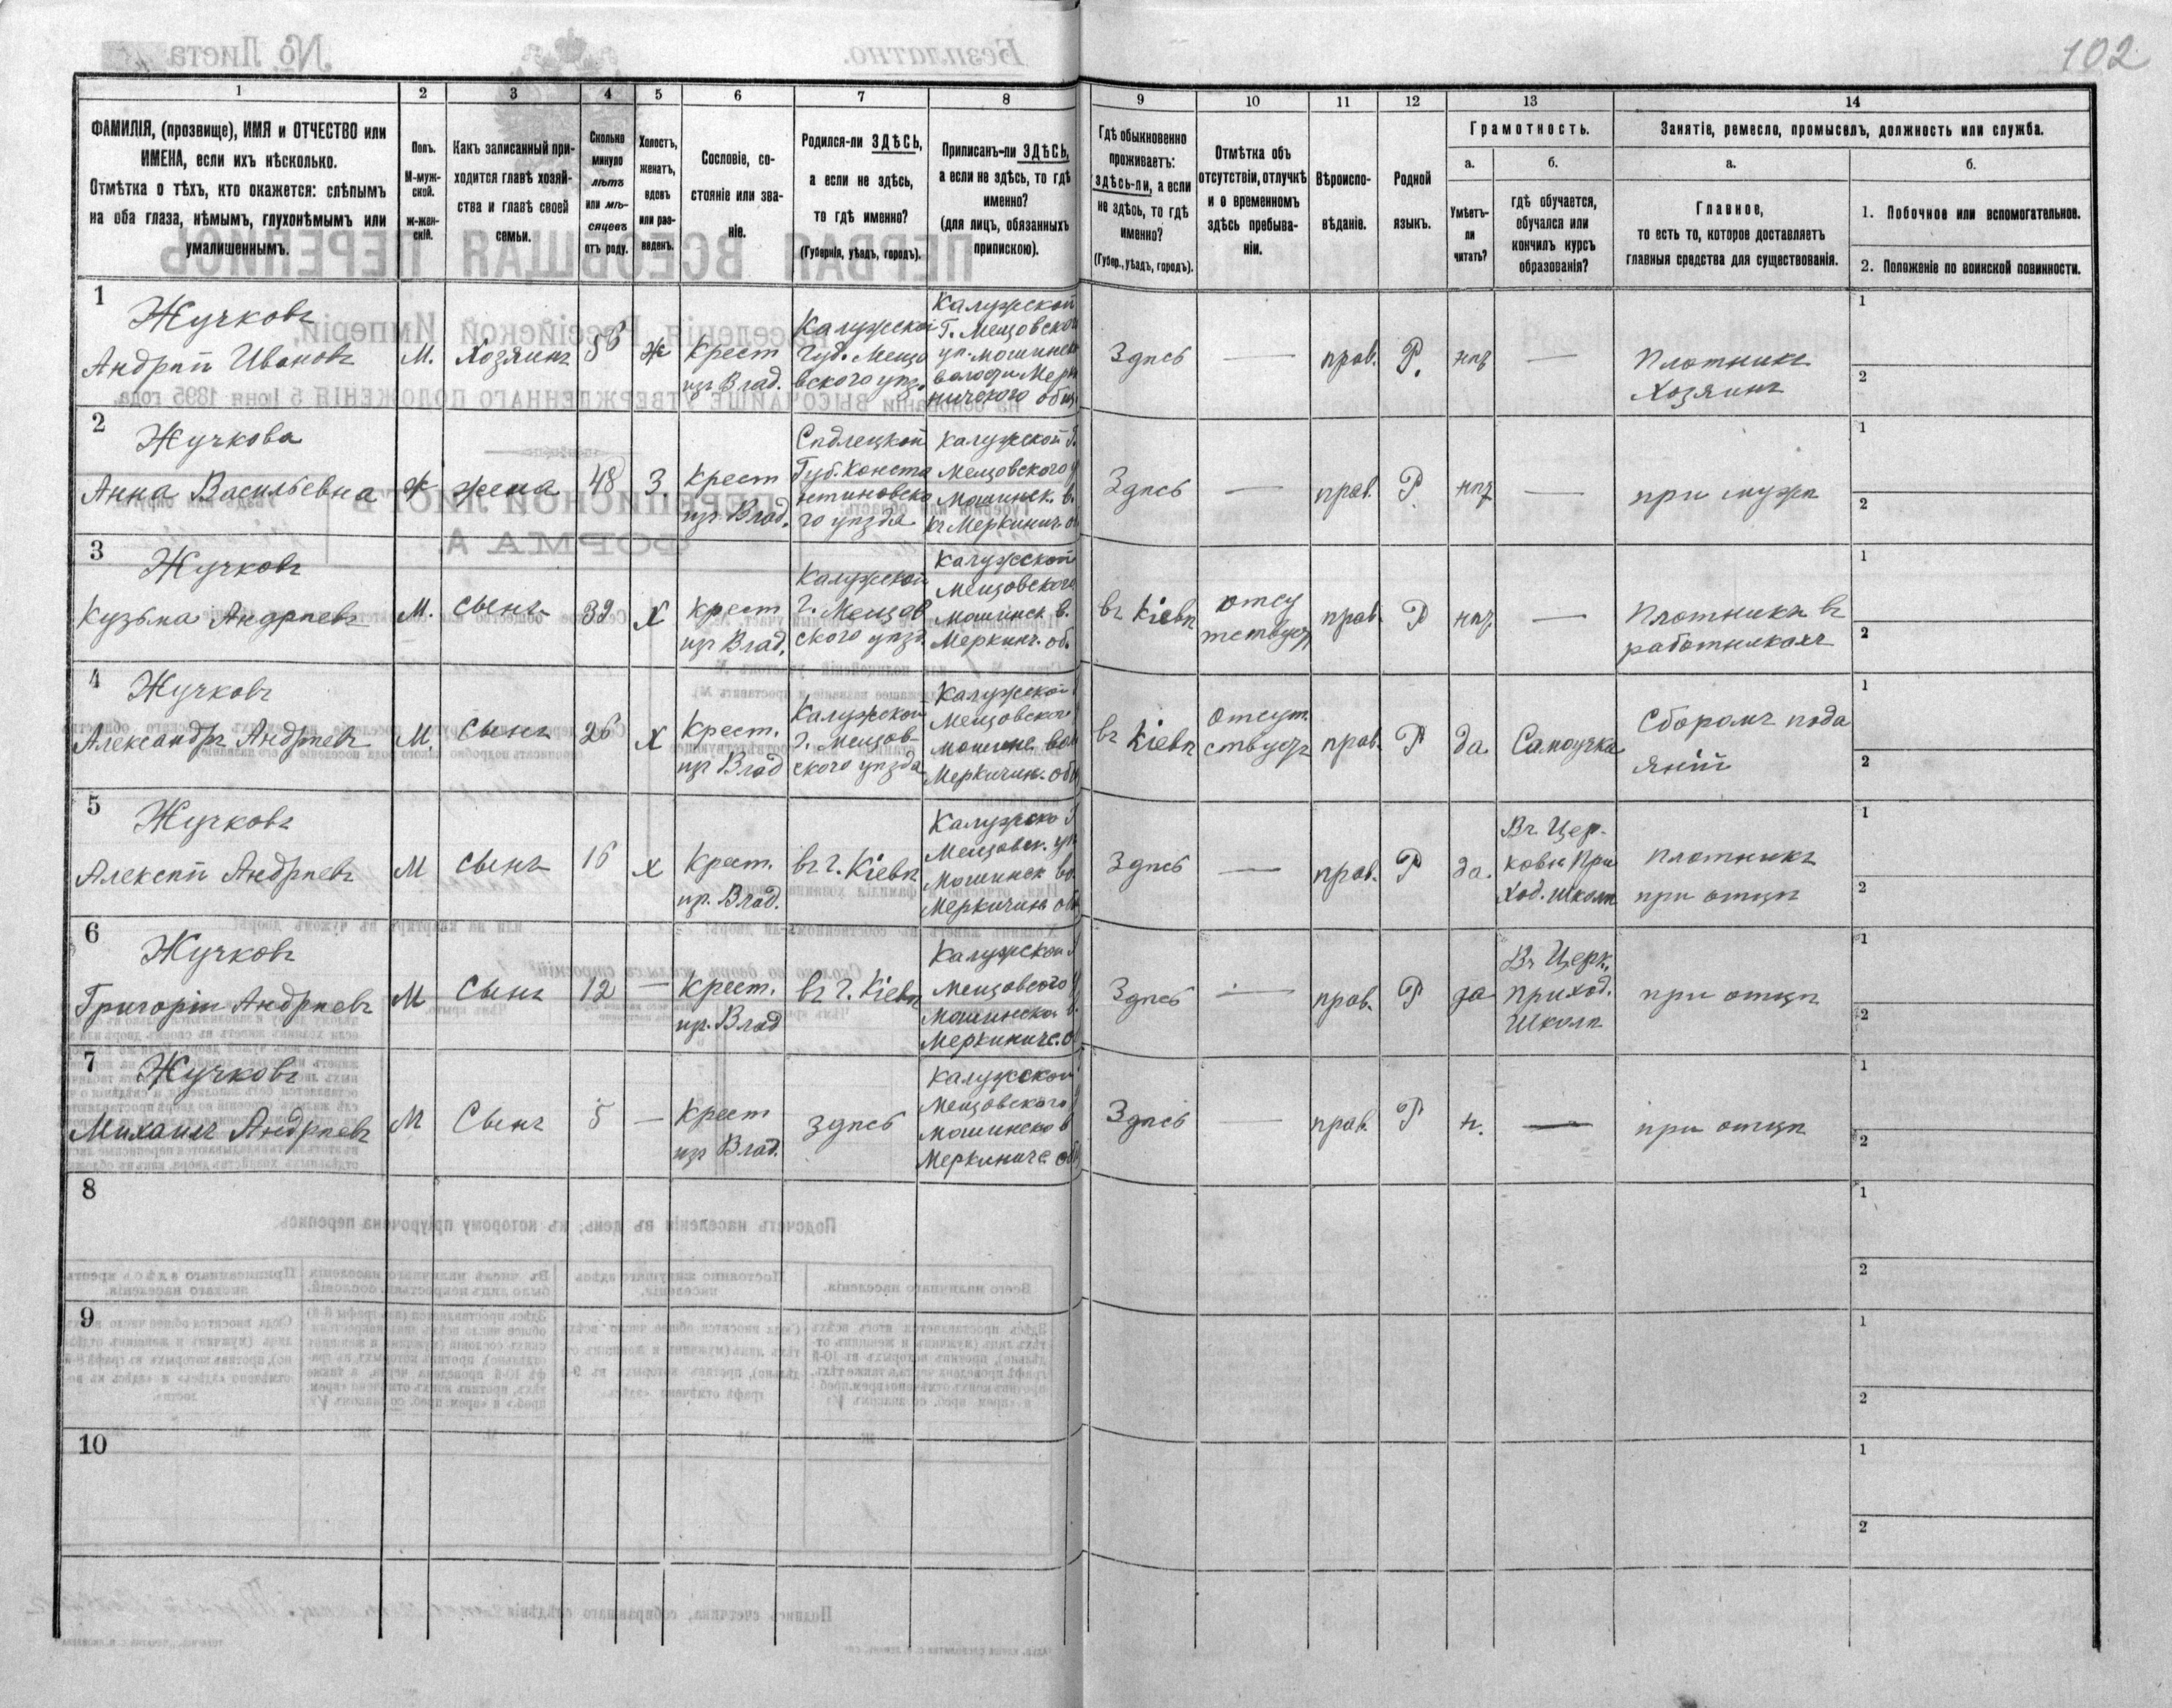 102
1
2
3
4
5
6
7
8
9
10
11
12
13
14
ФАМИЛІЯ, (прозвище), ИМЯ и ОТЧЕСТВО или
ИМЕНА, если ихъ нѣсколько.
Отмѣтка о тѣхъ, кто окажется: слѣпымъ
на оба глаза, нѣмымъ, глухонѣмымъ или
умалишеннымъ.
Полъ.
М-муж-
ской.
Ж-жен-
скій.
Какъ записанный при-
ходится главѣ хозяй-
ства и главѣ своей
семьи.
Сколько
минуло
лѣтъ
или мѣ-
сяцевъ
отъ роду.
Холостъ,
женатъ,
вдовъ
или раз-
веденъ.
Сословіе, со-
стояніе или зва-
ніе.
Родился-ли ЗДѢСЬ,
а если не здѣсь,
то гдѣ именно?
(Губернія, уѣздъ, городъ).
Приписанъ-ли ЗДѢСЬ,
а если не здѣсь, то гдѣ
именно?
(для лицъ, обязанныхъ
припискою).
Гдѣ обыкновенно
проживаетъ:
здѣсь-ли, а если
не здѣсь, то гдѣ
именно?
(Губер., уѣздъ, городъ).
Отмѣтка объ
отсутствіи, отлучкѣ
и о временномъ
здѣсь пребыва-
ніи.
Вѣроиспо-
вѣданіе.
Родной
языкъ.
Грамотность.
а.
Умѣетъ-
ли
читать?
б.
гдѣ обучается,
обучался или
кончилъ курсъ
образованія?
Занятіе, ремесло, промыселъ, должность или служба.
а.
Главное,
то есть то, которое доставляетъ
главныя средства для существованія.
б.
1. Побочное или вспомогательное.
2. Положеніе по воинской повинности.
1
Жучковъ
Андрѣй Ивановъ
М.
Хозяинъ
Ж
Крест
изъ Влад.
Калужской
Губ. Мещо
вского уѣзд.
Калужской
Г. Мещовского
уѣ. Мошинск
волости Мерк
нического общ.
Здѣсь
—
прав.
Р.
нѣ
—
Плотникъ
Хозяинъ
1
2
2
Жучкова
Анна Васильевна
Ж
жена
48
З.
Крест
из. Влад.
Сѣдлецкой
Губ. Конста
нтиновско
го уѣзда
Калужской Г.
Мещовского у
Мошинск. в.
Меркинич. о
Здѣсь
—
прав.
Р
нѣ
—
при мужѣ
1
2
3
Жучковъ
Кузьма Андрѣевъ
М.
сынъ
Х
крест
из Влад.
Калужской
Г. Мещов
ского уѣзд.
Калужской
Мещовского
Мошинск. в.
Меркинч. об.
въ Кіевѣ
отсу
тствуетъ
прав.
Р
нѣ
—
Плотникъ въ
работникахъ
1
2
4
Жучковъ
Александръ Андрѣевъ
М.
Сынъ
26
Х
Крест.
из Влад
Калужской
Г. Мещов-
ского уѣзда
Калужской
Мещовского
Мошинс. вол
Меркинич. общ
въ Кіевѣ
Отсут.
ствуетъ
прав.
Р
да
Самоучка
Сборомъ пода
яній
1
2
5
Жучковъ
Алексѣй Андрѣевъ
М
сынъ
16
Х
Крест.
из. Влад.
въ г. Кіевѣ
Калужско Г
Мещовск. уѣ
Мошинск во.
Меркинич общ
Здѣсь
—
прав.
Р
да.
Въ Цер-
ковн При
ход. школѣ
Плотникъ
при отцѣ
1
2
6
Жучковъ
Григорій Андрѣевъ
М
Сынъ
12
—
Крест.
из. Влад
въ г. Кіевѣ
Калужской
Мещовского у
Мошинска в.
Меркинич. о
Здѣсь
—
прав.
Р
да
Въ Церк.
приход.
Школѣ
при отцѣ
1
2
7
Жучковъ
Михаилъ Андрѣевъ
М
Сынъ
5
—
Крест
из Влад.
Здѣсь
Калужской
Мещовского
Мошинско в
Меркинич. об
Здѣсь
—
прав.
Р
н.
—
при отцѣ
1
2
8
1
2
9
1
2
10
1
2